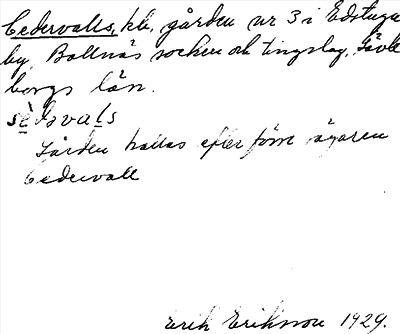 Cedervalls, kb, gården nr 3 i Edstuga
by, Bollnäs socken och tingslag, Gävle
borgs län.
sèdəvals
Gården kallas efter förre ägaren
Cedervall
Erik Eriksson 1929.